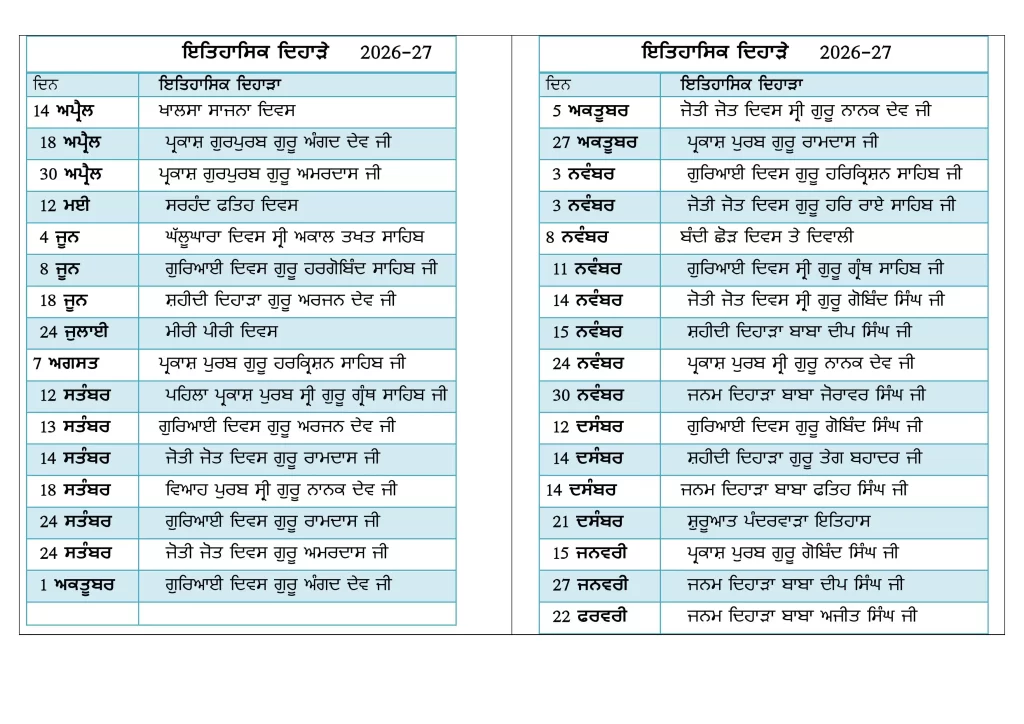 ਇਤਿਹਾਸਿਕ ਦਿਹਾੜੇ 2026-27
ਦਿਨ ਇਤਿਹਾਸਿਕ ਦਿਹਾੜਾ
14 ਅਪ੍ਰੈਲ ਖਾਲਸਾ ਸਾਜਨਾ ਦਿਵਸ
18 ਅਪ੍ਰੈਲ ਪ੍ਰਕਾਸ਼ ਗੁਰਪੁਰਬ ਗੁਰੂ ਅੰਗਦ ਦੇਵ ਜੀ
30 ਅਪ੍ਰੈਲ ਪ੍ਰਕਾਸ਼ ਗੁਰਪੁਰਬ ਗੁਰੂ ਅਮਰਦਾਸ ਜੀ
12 ਮਈ ਸਰਹੰਦ ਫਤਿਹ ਦਿਵਸ
4 ਜੂਨ ਘੱਲੂਘਾਰਾ ਦਿਵਸ ਸ੍ਰੀ ਅਕਾਲ ਤਖਤ ਸਾਹਿਬ
8 ਜੂਨ ਗੁਰਿਆਈ ਦਿਵਸ ਗੁਰੂ ਹਰਗੋਬਿੰਦ ਸਾਹਿਬ ਜੀ
18 ਜੂਨ ਸ਼ਹੀਦੀ ਦਿਹਾੜਾ ਗੁਰੂ ਅਰਜਨ ਦੇਵ ਜੀ
24 ਜੁਲਾਈ ਮੀਰੀ ਪੀਰੀ ਦਿਵਸ
7 ਅਗਸਤ ਪ੍ਰਕਾਸ਼ ਪੁਰਬ ਗੁਰੂ ਹਰਕ੍ਰਿਸ਼ਨ ਸਾਹਿਬ ਜੀ
12 ਸਤੰਬਰ ਪਹਿਲਾ ਪ੍ਰਕਾਸ਼ ਪੁਰਬ ਸ੍ਰੀ ਗੁਰੂ ਗ੍ਰੰਥ ਸਾਹਿਬ ਜੀ
13 ਸਤੰਬਰ ਗੁਰਿਆਈ ਦਿਵਸ ਗੁਰੂ ਅਰਜਨ ਦੇਵ ਜੀ
14 ਸਤੰਬਰ ਜੋਤੀ ਜੋਤ ਦਿਵਸ ਗੁਰੂ ਰਾਮਦਾਸ ਜੀ
18 ਸਤੰਬਰ ਵਿਆਹ ਪੁਰਬ ਸ੍ਰੀ ਗੁਰੂ ਨਾਨਕ ਦੇਵ ਜੀ
24 ਸਤੰਬਰ ਗੁਰਿਆਈ ਦਿਵਸ ਗੁਰੂ ਰਾਮਦਾਸ ਜੀ
24 ਸਤੰਬਰ ਜੋਤੀ ਜੋਤ ਦਿਵਸ ਗੁਰੂ ਅਮਰਦਾਸ ਜੀ
1 ਅਕਤੂਬਰ ਗੁਰਿਆਈ ਦਿਵਸ ਗੁਰੂ ਅੰਗਦ ਦੇਵ ਜੀ
ਇਤਿਹਾਸਿਕ ਦਿਹਾੜੇ 2026-27
ਦਿਨ ਇਤਿਹਾਸਿਕ ਦਿਹਾੜਾ
5 ਅਕਤੂਬਰ ਜੋਤੀ ਜੋਤ ਦਿਵਸ ਸ੍ਰੀ ਗੁਰੂ ਨਾਨਕ ਦੇਵ ਜੀ
27 ਅਕਤੂਬਰ ਪ੍ਰਕਾਸ਼ ਪੁਰਬ ਗੁਰੂ ਰਾਮਦਾਸ ਜੀ
3 ਨਵੰਬਰ ਗੁਰਿਆਈ ਦਿਵਸ ਗੁਰੂ ਹਰਿਕ੍ਰਿਸ਼ਨ ਸਾਹਿਬ ਜੀ
3 ਨਵੰਬਰ ਜੋਤੀ ਜੋਤ ਦਿਵਸ ਗੁਰੂ ਹਰਿ ਰਾਏ ਸਾਹਿਬ ਜੀ
8 ਨਵੰਬਰ ਬੰਦੀ ਛੋੜ ਦਿਵਸ ਤੇ ਦਿਵਾਲੀ
11 ਨਵੰਬਰ ਗੁਰਿਆਈ ਦਿਵਸ ਸ੍ਰੀ ਗੁਰੂ ਗ੍ਰੰਥ ਸਾਹਿਬ ਜੀ
14 ਨਵੰਬਰ ਜੋਤੀ ਜੋਤ ਦਿਵਸ ਸ੍ਰੀ ਗੁਰੂ ਗੋਬਿੰਦ ਸਿੰਘ ਜੀ
15 ਨਵੰਬਰ ਸ਼ਹੀਦੀ ਦਿਹਾੜਾ ਬਾਬਾ ਦੀਪ ਸਿੰਘ ਜੀ
24 ਨਵੰਬਰ ਪ੍ਰਕਾਸ਼ ਪੁਰਬ ਸ੍ਰੀ ਗੁਰੂ ਨਾਨਕ ਦੇਵ ਜੀ
30 ਨਵੰਬਰ ਜਨਮ ਦਿਹਾੜਾ ਬਾਬਾ ਜੋਰਾਵਰ ਸਿੰਘ ਜੀ
12 ਦਸੰਬਰ ਗੁਰਿਆਈ ਦਿਵਸ ਗੁਰੂ ਗੋਬਿੰਦ ਸਿੰਘ ਜੀ
14 ਦਸੰਬਰ ਸ਼ਹੀਦੀ ਦਿਹਾੜਾ ਗੁਰੂ ਤੇਗ ਬਹਾਦਰ ਜੀ
14 ਦਸੰਬਰ ਜਨਮ ਦਿਹਾੜਾ ਬਾਬਾ ਫਤਿਹ ਸਿੰਘ ਜੀ
21 ਦਸੰਬਰ ਸ਼ੁਰੂਆਤ ਪੰਦਰਵਾੜਾ ਇਤਿਹਾਸ
15 ਜਨਵਰੀ ਪ੍ਰਕਾਸ਼ ਪੁਰਬ ਗੁਰੂ ਗੋਬਿੰਦ ਸਿੰਘ ਜੀ
27 ਜਨਵਰੀ ਜਨਮ ਦਿਹਾੜਾ ਬਾਬਾ ਦੀਪ ਸਿੰਘ ਜੀ
22 ਫਰਵਰੀ ਜਨਮ ਦਿਹਾੜਾ ਬਾਬਾ ਅਜੀਤ ਸਿੰਘ ਜੀ